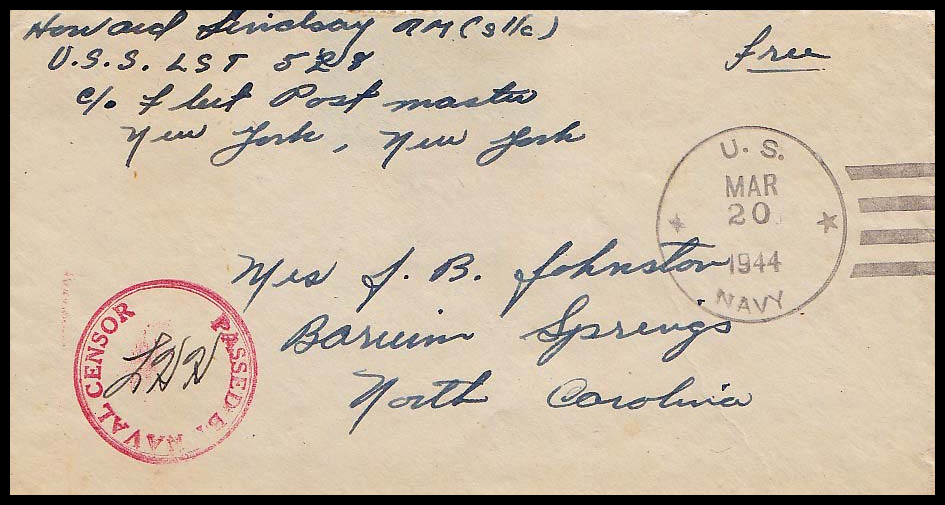 Howard Lindsay RM (3/c)
U.S.S. LST 528
c/o Fleet Post master
New York, New York
Free
U. S.
MAR
20
1944
NAVY
Mrs J. B. Johnston
Barium Springs
North Carolina
PASSED BY NAVAL CENSOR